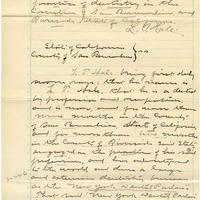 practice of dentistry in the
Counties of San Bernardino and
Riverside, State of California.
L. T. Hale.
State of California
County of San Bernardino } ss
L. T. Hale being first duly
sworn says, that his name is
L. T. Hale, that he is a
by profession and occupation,
and a now for more than
nine months in the County
of San Bernardino State of California
and for more than months
in the County of Riverside said State
engaged in the practice of his
profession, and has advertised
to the world and done a large
and extensive dentistry business
as the New York Dental Parlors
That said New York Dental Parlors